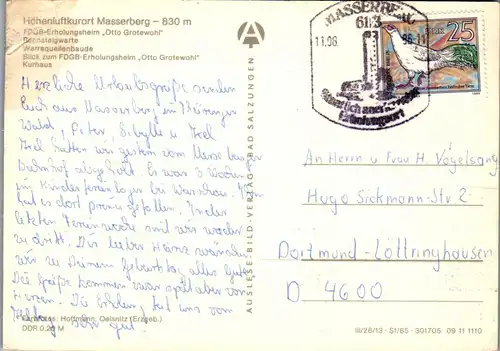 Höhenluftkurort Masserberg – 830 m
FDGB-Erholungsheim „Otto Grotewohl"
Rennsteigwarte
Werraquellenbaude
Blick zum FDGB-Erholungsheim „Otto Grotewohl"
Kurhaus
Herzliche Urlaubsgrüße senden
Euch aus Masserberg im Thüringer
Wald, Peter, Sibylle u. Axel
Axel hatten wir gestern vom
Bahnhof abgeholt. Er war 3 Wochen
im Kinderferienlager bei Warschau. Ihm
hat es dort prima gefallen. In der
letzten Ferienwoche sind wir wieder
zu dritt. Dir lieber Heinz wünschen
wir zu Deinem Geburtstag alles Gute.
Die Grüße kommen zwar spät aber von
Herzen. Die Erholung tut uns vom
sehr gut!
Farbfotos: Hoffmann, Oelsnitz (Erzgeb.)
DDR 0,20 M
AUSLESE-BILD-VERLAG BAD SALZUNGEN
MASSERBERG
6113
11.08.
86-11
staatlich anerkannter
Erholungsort
DDR 25
An Herrn u Frau H. Vogelsang
Hugo Sickmann-Str 2
Dortmund-Löttringhausen
D 4600
III/26/13 · S1/85 · 301705 09 11 1110